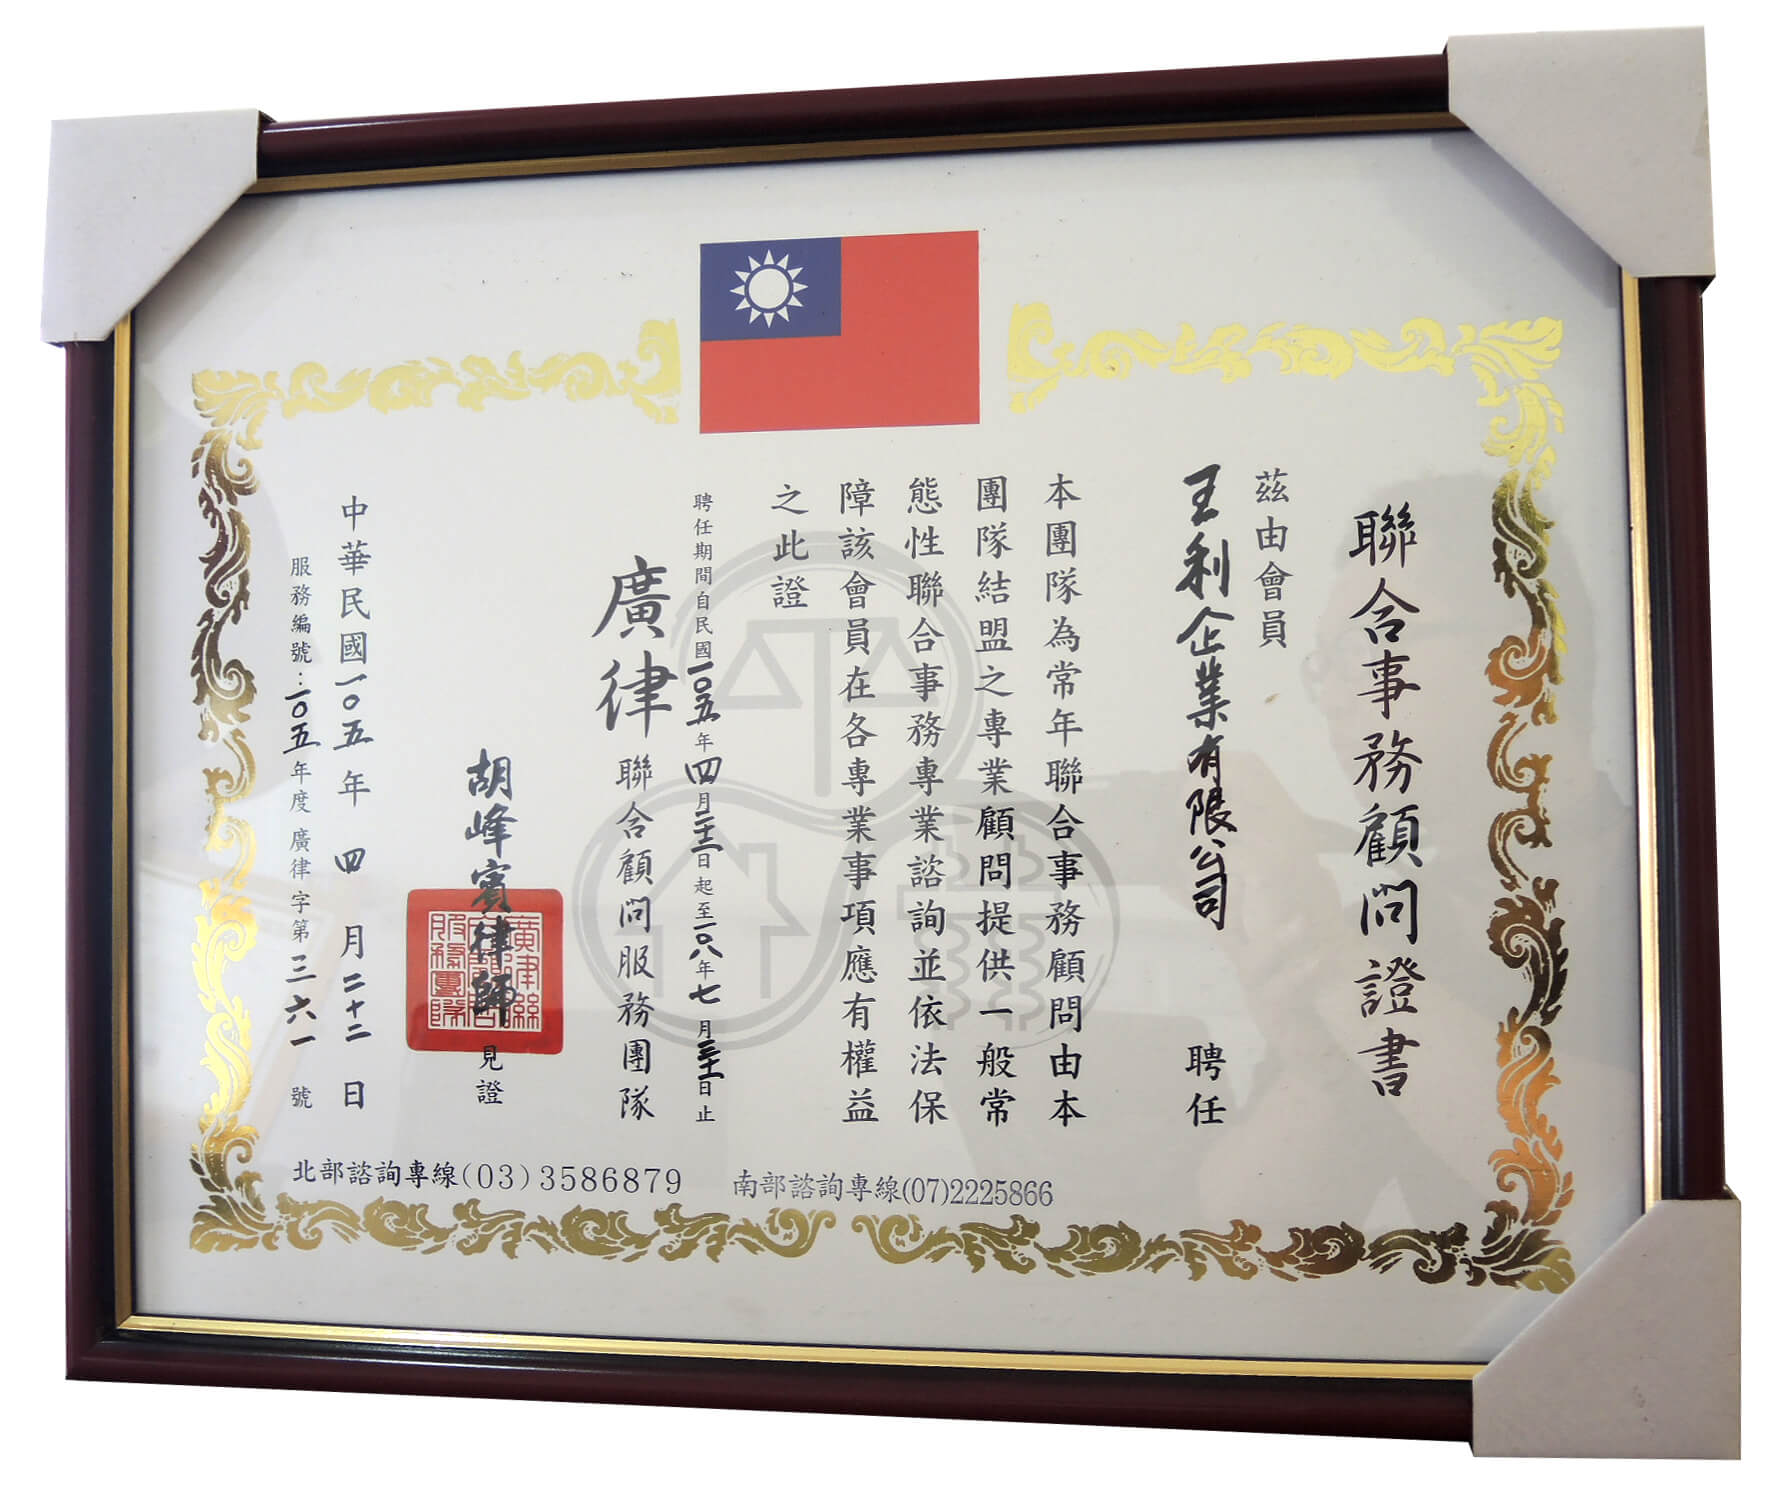 聯合事務顧問證書
茲由會員
王利企業有限公司 聘任
本團隊為常年聯合事務顧問由本
團隊結盟之專業顧問提供一般常
態性聯合事務專業諮詢並依法保
障該會員在各專業事項應有權益
之此證
聘任期間自民國一〇五年四月二十二日起至一〇八年七月三十一日止
廣律聯合顧問服務團隊
胡峰賓律師見證
中華民國一〇五年四月二十二日
服務編號：一〇五年度廣律字第三六一號
北部諮詢專線(03)3586879 南部諮詢專線(07)2225866